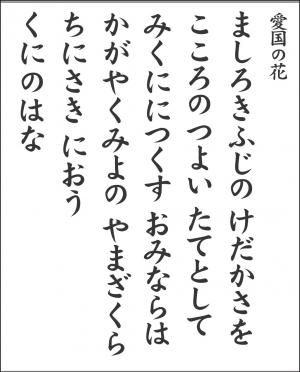 愛国の花
ましろきふじの けだかさを
こころのつよい たてとして
みくににつくす おみならは
かがやくみよの やまざくら
ちにさき におう
くにのはな